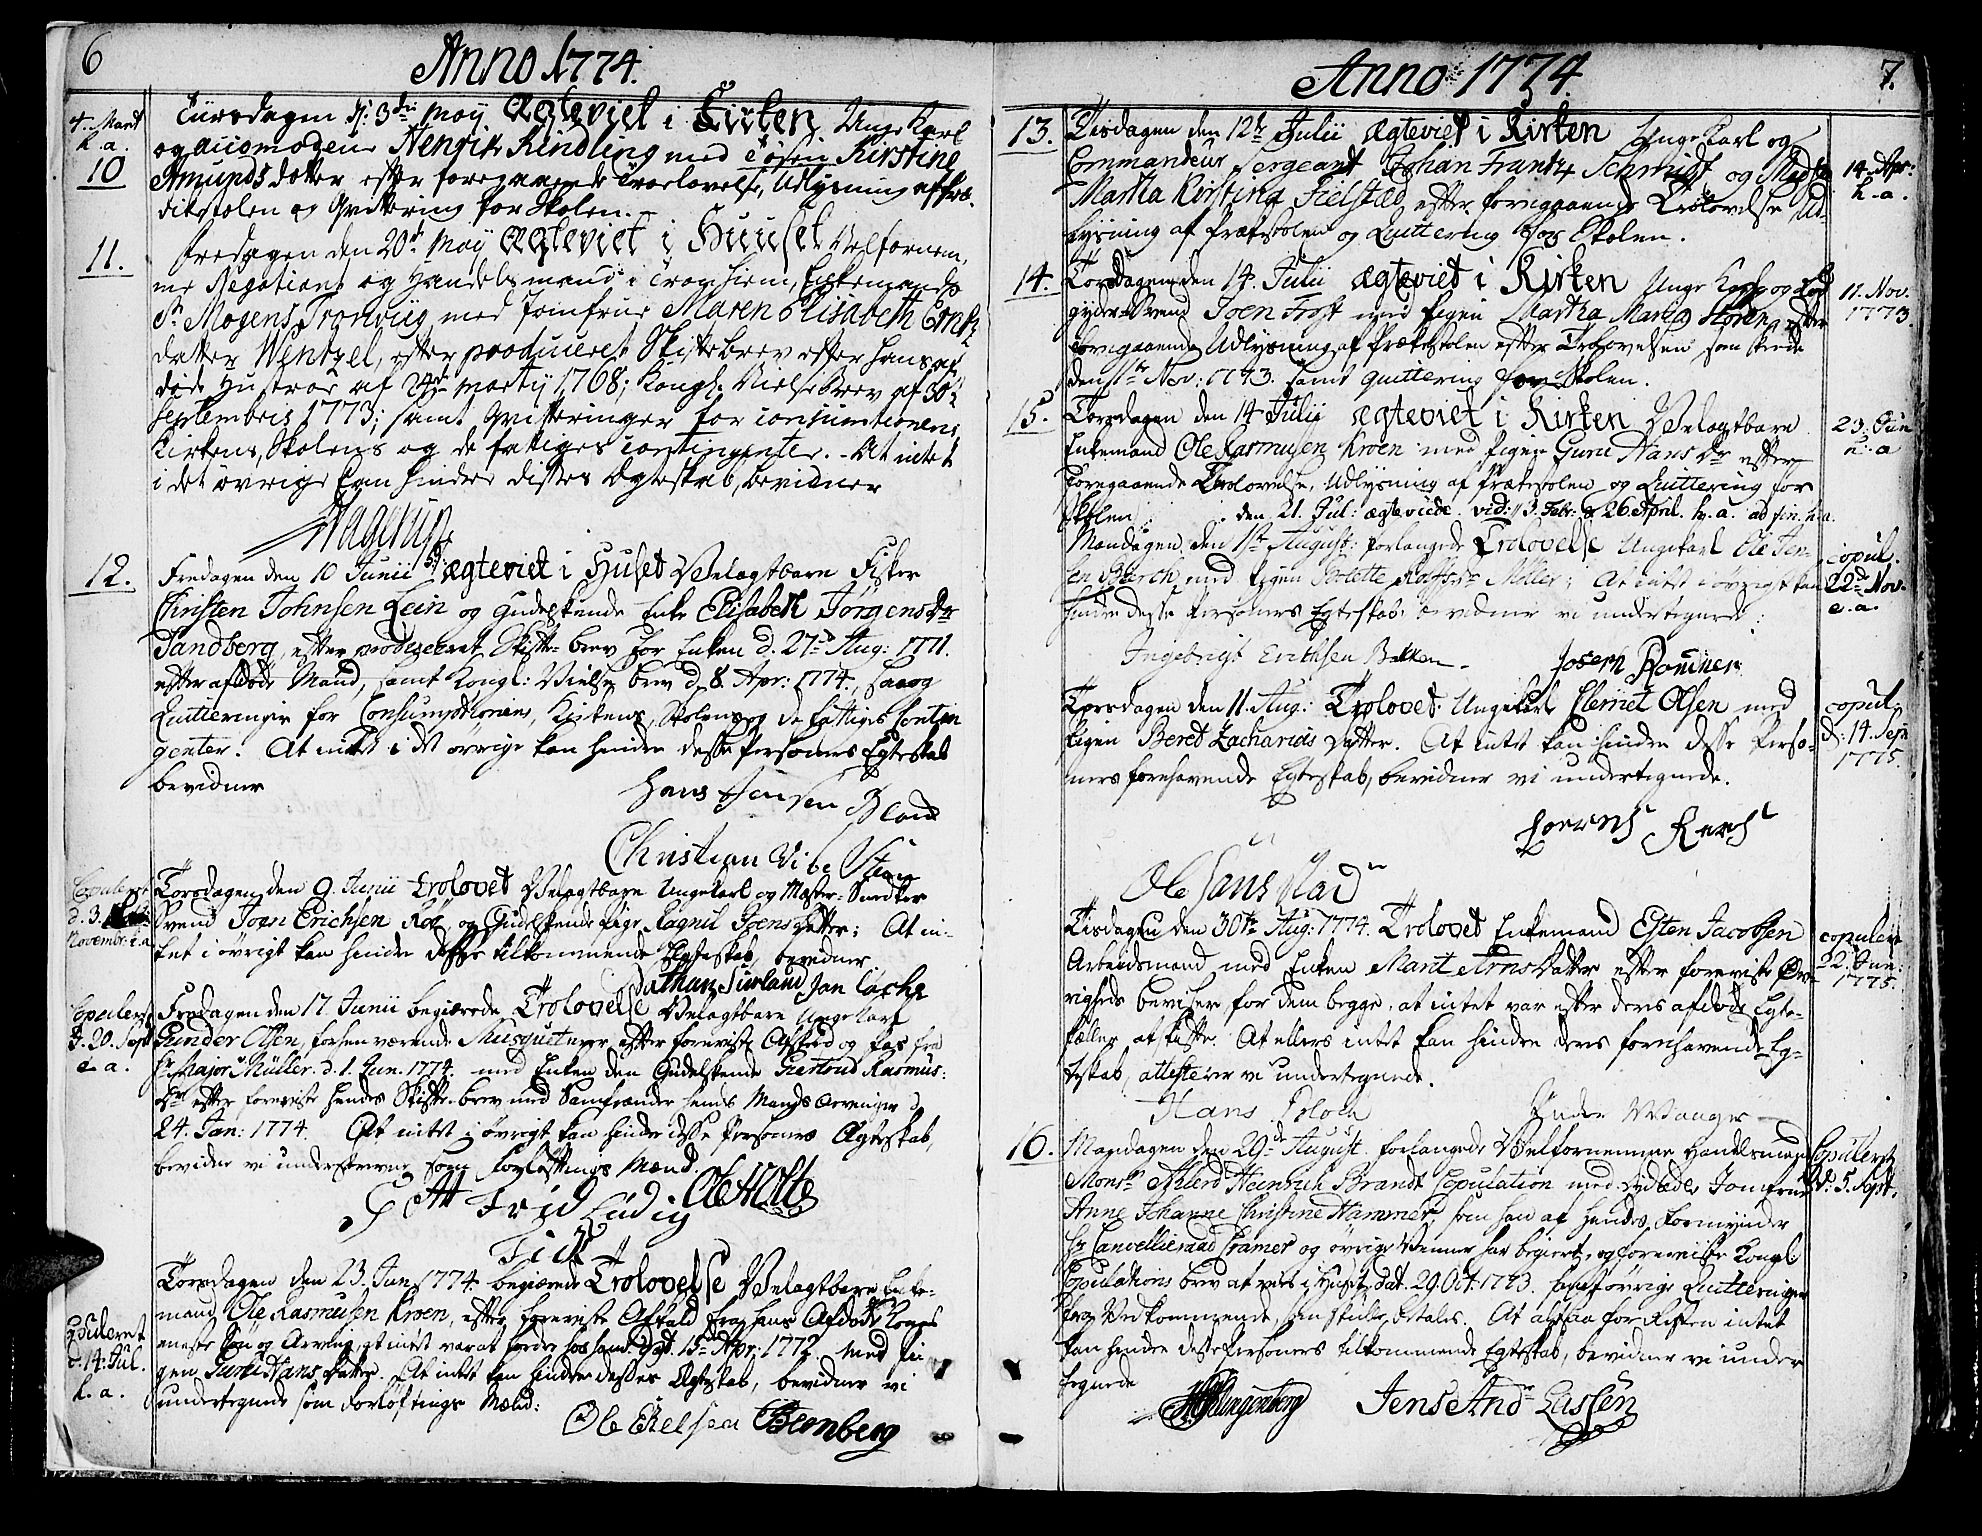 6
Anno 1774.
4. Mart
h. a.
10
Tiirsdagen d: 3die Maÿ Ægteviet i Kirken Unge Karl
og Henrik Kindling med Tøsen Kirstine
Amunds datter efter foregaaende Troelovelse, Udlysning af Præ-
dikstolen og Qvittering for Skolen.
11.
Fredagen den 20de Maÿ Ægteviet i Huuset Velfornem-
me Negotiant og Handelsmand i Tronhiem, Enkemand
Sr Mogens Tronvüg med Jomfrue Maren Elisabeth
datter Wentzel, efter produceret Skiftebrev efter hans af-
døde Hustroe af Martij 1768; Kongl. Vielse Brev af 30te
Septembris 1773; samt Qvitteringer for Consumtionens
Kirkens, Skolens og de fattiges Contingenter. - At intet
i det øvrige kan hindre disses Ægteskab, bevidner
Hagerup
12.
Fredagen den 10 Junii Ægteviet i Huset Velagtbare Fisker
Christen Johnsen Lein og Gudelskende Enke Elisabeth Jørgens Dr
Sandberg, efter produceret Skifte-brev for Enken d. 27de Aug: 1771.
efter afdøde Mand, samt Kongl: Vielse brev d. 8. Apr: 1774, saa og
Quitteringer for Consumptionens, Kirkens, Skolens og de fattiges Contin
genter. At intet i det øvrige kan hindre desse Personers Egteskab
bevidner
Hans Jensen Bland
Christian Vibe
Copuleret
d. 3.
Novembr: e.a.
Torsdagen den 9. Junii Trolovet Velagtbare Ungekarl og Mester-Snedker
Svend Joen Erichsen og Gudelskende Pige Ragnil Joens Datter; At in-
tet i øvrigt kan hindre disses tilkommende Egteskab, bevidner
Jonathan Surland Jan
Copuleret
d. 20. Sept
e. a.
Fredagen den 17. Junii begiærede Trolovelse Velagtbare Ungekarl
Gunder Olsen, forhen værende Musqueterer, efter foreviste Afskeed og Pas fra
Hr Major Müller d. 1. Jun. 1774. med Enken den Gudelskende Giertrud Rasmus-
Dr efter foreviste hendes Skifte-brev med Samfrænder hendes Mands Arvinger d
24. Jan: 1774. At intet i øvrigt kan hindre disse Personers Ægteskab,
bevidner vi underskrevne som Forløftnings Mænd.
Frid Ludvig Ole Holte
Fick
Copuleret
d: 14. Jul.
h. a.
Torsdagen den 23. Jun 1774. begiærede Trolovelse Velagtbare Enke-
mand Ole Rasmusen Kroen, efter foreviste Afkald fra hans Afdøde Kones
eneste Søn og Arving, at intet var at fordre hos ham Dat. 15de Apr: 1772 med Pi-
gen Guru Hans Datter. At intet kan hindre disses Ægteskab, bevidner vi
undertegnede som Forløftnings Mænd:
Ole Bernberg
Anno 1774.
7.
13.
Tisdagen den 12te Julii Ægteviet i Kirken Unge Karl og
Commandeur Sergeant Johan Frantz Schmidt og Madse
Martha Kirstina Fielstad, efter foregaaende Trolovelse Ud-
lysning af Prækestolen og Quittering for Skolen.
14. Apr:
h. a.
14.
Torsdagen den 14. Julii Ægteviet i Kirken Unge Karl og
gyder-Svend Joen Frost med Pigen Martha Maria Støren, efter
foregaaende Udlysning af Prækestolen efter Trolovelsen som skeede
den 11te Nov: 1773. samt quittering for Skolen.
11. Nov.
1773.
15.
Torsdagen den 14 Julii Ægteviet i Kirken Velagtbare
Enkemand Ole Rasmusen Kroen med Pigen Guru Hans Dr efter
foregaaende Trolovelse, Udlysning af Prækestolen og Quittering for
Skolen. den 21. Jul: ægteviede vid: 13. Febr: & 26. April. h. a. ad fin. h.a.
23. Jun
h. a
Mandagen den 1ste August: forlangede Trolovelse Ungekarl Ole Jen-
sen Burch med Pigen Bolette Møller; At intet i øvrigt kan
hindre desse Personers Egteskab bevidner vi undertegnede:
copul.
22de Nov.
e. a.
Ingebrigt Erichsen Bakken. Joseph
Torsdagen den 11. Aug: Trolovet Ungekarl Clemet Olsen med
Pigen Beret Zacharias Datter. At intet kan hindre disse Perso-
ners forehavende Egteskab, bevidner vi undertegnede.
copul.
d: 14. Sept
1775.
Ole
Tisdagen den 30te Aug: 1774. Trolovet Enkemand Esten Jacobsen
Arbeidsmand med Enken Marit Arns Datter efter foreviste Øv-
righeds beviser for dem begge, at intet var efter deres afdøde Egte-
fæller at skifte. At ellers intet kan hindre deres forehavende Eg-
teskab, attesterer vi undertegnede.
copuleret
1775.
Hans Ploch Wanger
16.
Mandagen den 29de August. forlangede Velfornemme Handelsmand
Monsr Ahlerd Heinrich Brandt Copulation med dydædle Jomfrue
Anne Johanne Christine Hammer, som han af hendes Formynder
Hr Cancellieraad Cramer og øvrige Venner har begiert, og foreviiste Kongl:
Copulations brev at vies i Huset, Dat. 29. Oct. 1773. samt øvrige Quitteringer
fra Vedkommende, som skulle betales. At altsaa for Resten intet
kan hindre desse Personers tilkommende Egteskab, bevidner vi under
tegnede
Copuleret
d: 5. Sept.
Klingenberg Jens And: Lassen